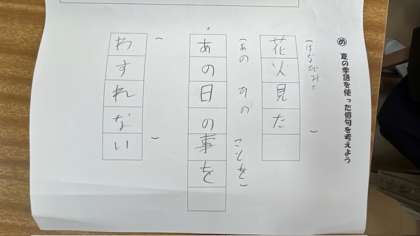 め 夏の季語を使った俳句を考えよう
(はなびみた)
花火見た
(あの ひの ことを)
あの日の事を
( )
わすれない